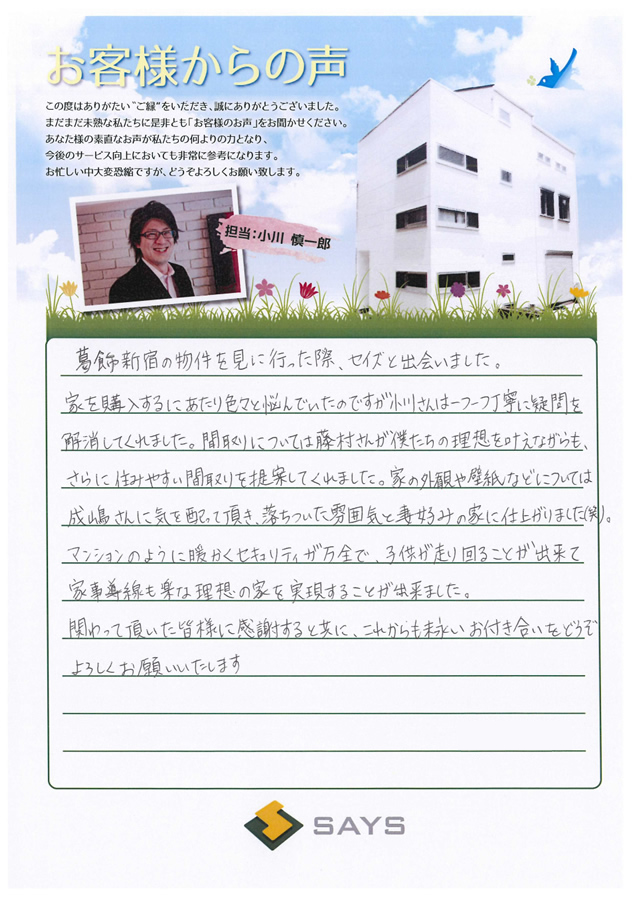 お客様からの声
この度はありがたい“ご縁”をいただき、誠にありがとうございました。
まだまだ未熟な私たちに是非とも「お客様のお声」をお聞かせください。
あなた様の素直なお声が私たちの何よりの力となり、
今後のサービス向上においても非常に参考になります。
お忙しい中大変恐縮ですが、どうぞよろしくお願い致します。
担当:小川 慎一郎
葛飾新宿の物件を見に行った際、セイズと出会いました。
家を購入するにあたり色々と悩んでいたのですが小川さんは一つ一つ丁寧に疑問を
解消してくれました。間取りについては藤村さんが僕たちの理想を叶えながらも、
さらに住みやすい間取りを提案してくれました。家の外観や壁紙などについては
成嶋さんに気を配って頂き、落ちついた雰囲気と妻好みの家に仕上がりました(笑)。
マンションのように暖かくセキュリティが万全で、子供が走り回ることが出来て
家事導線も楽な理想の家を実現することが出来ました。
関わって頂いた皆様に感謝すると共に、これからも末永いお付き合いをどうぞ
よろしくお願いいたします
SAYS